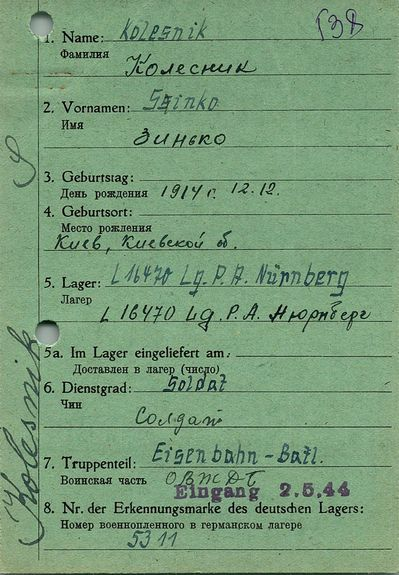 138
1. Name: Kolesnik
Фамилия
Колесник
2. Vornamen: Sinko
Имя
Зинько
3. Geburtstag:
День рождения 1914 г. 12.12.
4. Geburtsort:
Место рождения
Киев, Киевской об.
5. Lager: L 16470 Lg. P. A. Nürnberg
Лагер
L 16470 Lg. P. A. Нюрнберг
5a. Im Lager eingeliefert am:
Доставлен в лагер (число)
6. Dienstgrad: Soldat
Чин
Солдат
7. Truppenteil: Eisenbahn-Batl.
Воинская часть ОВЖДБ
Eingang 2.5.44
8. Nr. der Erkennungsmarke des deutschen Lagers:
Номер военнопленного в германском лагере
5311
Kolesnik S